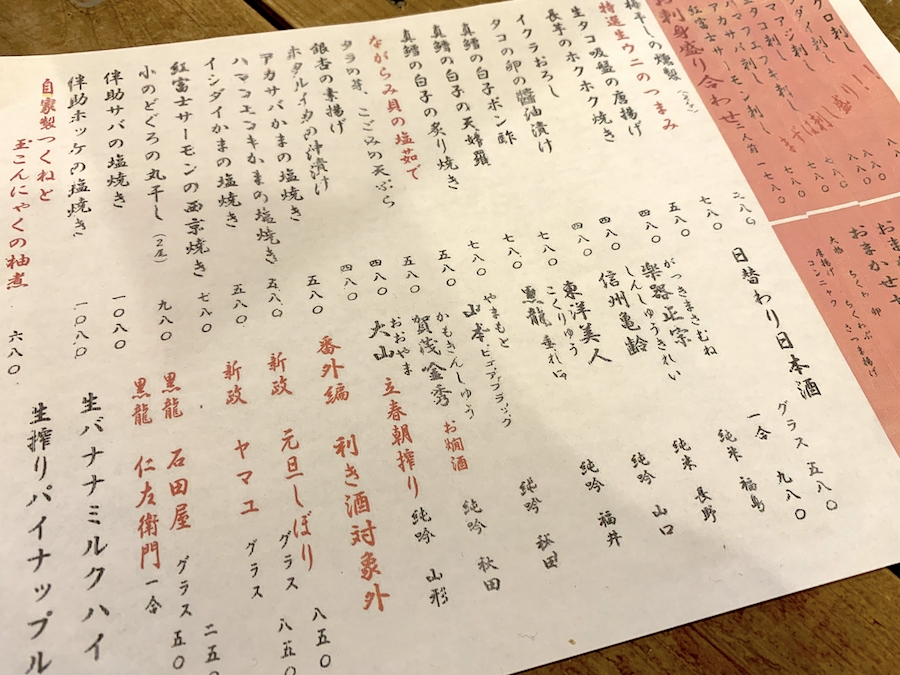 クロ刺し
ダイ刺し
マアジ刺し
紅富士サーモン刺し
お刺身盛り合わせ 二人前 一七八〇
まずは刺し盛り!!
おまかせ
大根 ちくわ ちくわぶ さつま揚げ
唐揚げ コンニャク
梅干しの燻製
特選生ウニのつまみ 二八〇
生タコ吸盤の唐揚げ 七八〇
長芋のホクホク焼き 五八〇
イクラおろし 四八〇
タコの卵の醤油漬け 四八〇
真鱈の白子ポン酢 七八〇
真鱈の白子の天麩羅 七八〇
真鱈の白子の炙り焼き 七八〇
ながらみ貝の塩茹で 五八〇
タラの芽、こごみの天ぷら 五八〇
銀杏の素揚げ 四八〇
ホタルイカの沖漬け 四八〇
アカサバかまの塩焼き 五八〇
ハマフエフキかまの塩焼き 五八〇
イシダイかまの塩焼き 五八〇
紅富士サーモンの西京焼き 七八〇
小のどぐろの丸干し(2尾) 九八〇
伴助サバの塩焼き 一〇八〇
伴助ホッケの塩焼き 一〇八〇
自家製つくねと
玉こんにゃくの柚煮 六八〇
日替わり日本酒 グラス 五八〇
一合 九八〇
がっきまさむね
楽器正宗 純米 福島
しんしゅうきれい
信州亀齢 純米 長野
東洋美人 純吟 山口
こくりゅう
黒龍 垂れ口 純吟 福井
やまもと
山本 ピュアブラック 純吟 秋田
かもきんしゅう
賀茂金秀 お燗酒 純吟 秋田
おおやま
大山 立春朝搾り 純吟 山形
番外編 利き酒対象外
新政 元旦しぼり グラス 八五〇
新政 ヤマユ グラス 八五〇
黒龍 石田屋 グラス 二五〇
黒龍 仁左衛門 一合 五〇
生バナナミルクハイ
生搾りパイナップル